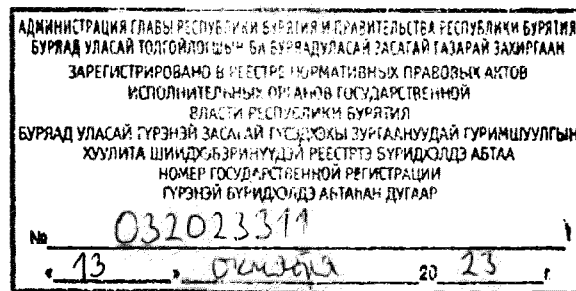 АДМИНИСТРАЦИЯ ГЛАВЫ РЕСПУБЛИКИ БУРЯТИЯ И ПРАВИТЕЛЬСТВА РЕСПУБЛИКИ БУРЯТИЯ
БУРЯАД УЛАСАЙ ТОЛГОЙЛОГШЫН БА БУРЯАД УЛАСАЙ ЗАСАГАЙ ГАЗАРАЙ ЗАХИРГААН
ЗАРЕГИСТРИРОВАНО В РЕЕСТРЕ НОРМАТИВНЫХ ПРАВОВЫХ АКТОВ
ИСПОЛНИТЕЛЬНЫХ ОРГАНОВ ГОСУДАРСТВЕННОЙ
ВЛАСТИ РЕСПУБЛИКИ БУРЯТИЯ
БУРЯАД УЛАСАЙ ГҮРЭНЭЙ ЗАСАГАЙ ГҮЙСЭДХЭХЫ ЗУРГААНУУДАЙ ГУРИМШУУЛГЫН
ХУУЛИТА ШИИДХЭБЭРИНҮҮДЭЙ РЕЕСТРТЭ БҮРИДХЭЛДЭ АБТАА
НОМЕР ГОСУДАРСТВЕННОЙ РЕГИСТРАЦИИ
ГҮРЭНЭЙ БҮРИДХЭЛДЭ АБТАҺАН ДУГААР
№ 032023311
« 13 » октября 20 23 г.